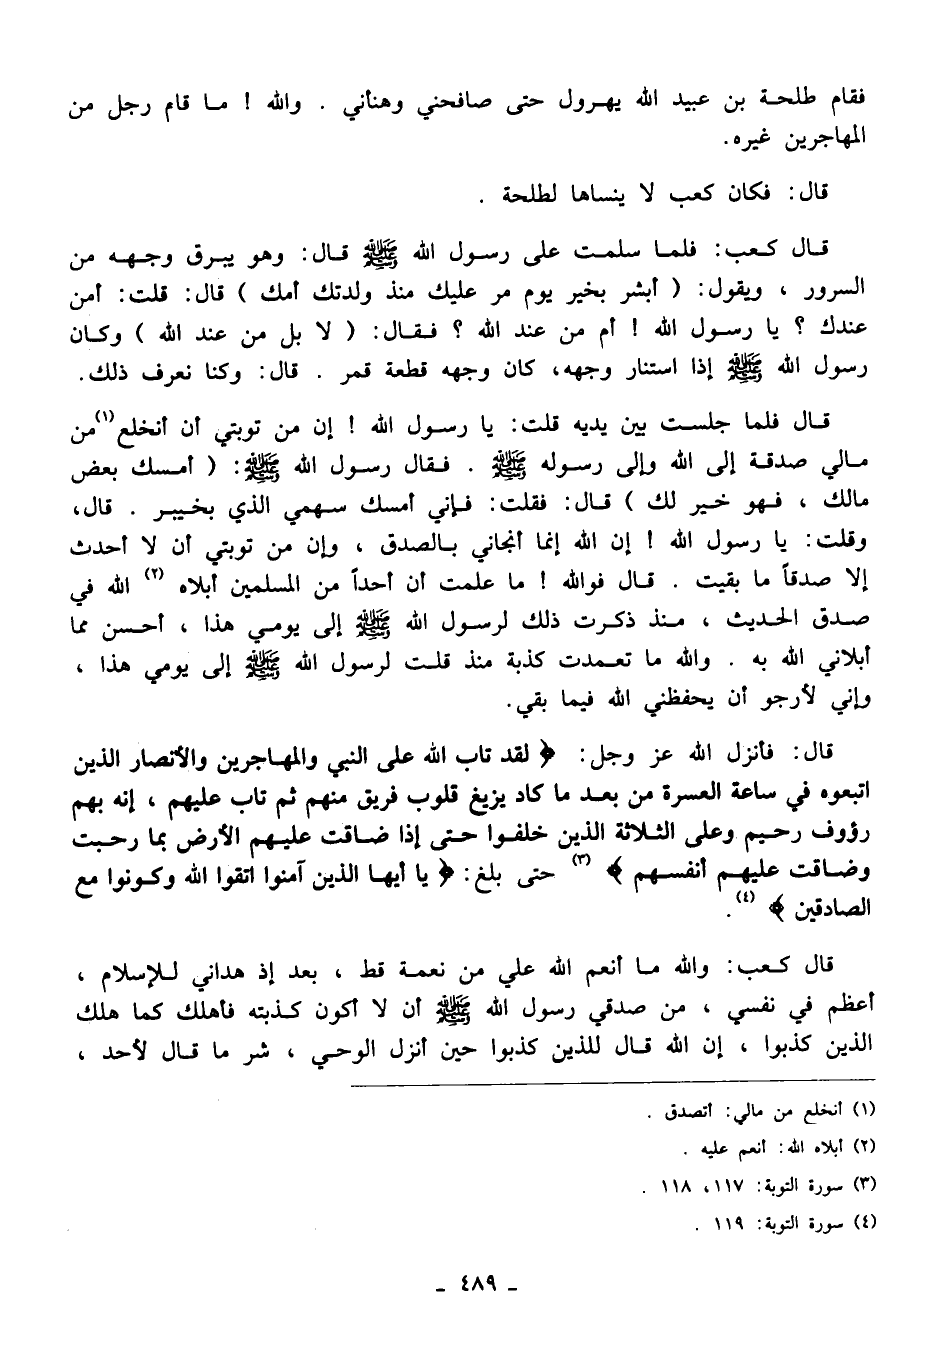 فقام طلحة بن عبيد الله يهرول حتى صافحني وهنأني . والله ! ما قام رجل من
المهاجرين غيره.
قال: فكان كعب لا ينساها لطلحة .
قال كعب: فلما سلمت على رسول الله ﷺ قال: وهو يبرق وجهه من
السرور ، ويقول: ( أبشر بخير يوم مر عليك منذ ولدتك أمك ) قال: قلت: أمن
عندك ؟ يا رسول الله ! أم من عند الله ؟ فقال: ( لا بل من عند الله ) وكان
رسول الله ﷺ إذا استنار وجهه، كان وجهه قطعة قمر . قال: وكنا نعرف ذلك.
قال فلما جلست بين يديه قلت: يا رسول الله ! إن من توبتي أن أنخلع(١)من
مالي صدقة إلى الله وإلى رسوله ﷺ . فقال رسول الله ﷺ: ( أمسك بعض
مالك ، فهو خير لك ) قال: فقلت: فإني أمسك سهمي الذي بخيبر . قال،
وقلت: يا رسول الله ! إن الله إنما أنجاني بالصدق ، وإن من توبتي أن لا أحدث
إلا صدقاً ما بقيت . قال فوالله ! ما علمت أن أحداً من المسلمين أبلاه (٢) الله في
صدق الحديث ، منذ ذكرت ذلك لرسول الله ﷺ إلى يومي هذا ، أحسن مما
أبلاني الله به . والله ما تعمدت كذبة منذ قلت لرسول الله ﷺ إلى يومي هذا ،
وإني لأرجو أن يحفظني الله فيما بقي.
قال: فأنزل الله عز وجل: ﴿ لقد تاب الله على النبي والمهاجرين والأنصار الذين
اتبعوه في ساعة العسرة من بعد ما كاد يزيغ قلوب فريق منهم ثم تاب عليهم ، إنه بهم
رؤوف رحيم وعلى الثلاثة الذين خلفوا حتى إذا ضاقت عليهم الأرض بما رحبت
وضاقت عليهم أنفسهم ﴾ (٣) حتى بلغ: ﴿ يا أيها الذين آمنوا اتقوا الله وكونوا مع
الصادقين ﴾ (٤).
قال كعب: والله ما أنعم الله علي من نعمة قط ، بعد إذ هداني للإسلام ،
أعظم في نفسي ، من صدقي رسول الله ﷺ أن لا أكون كذبته فأهلك كما هلك
الذين كذبوا ، إن الله قال للذين كذبوا حين أنزل الوحي ، شر ما قال لأحد ،
(١) أنخلع من مالي: أتصدق .
(٢) أبلاه الله: أنعم عليه .
(٣) سورة التوبة: ١١٧، ١١٨ .
(٤) سورة التوبة: ١١٩ .
- ٤٨٩ -